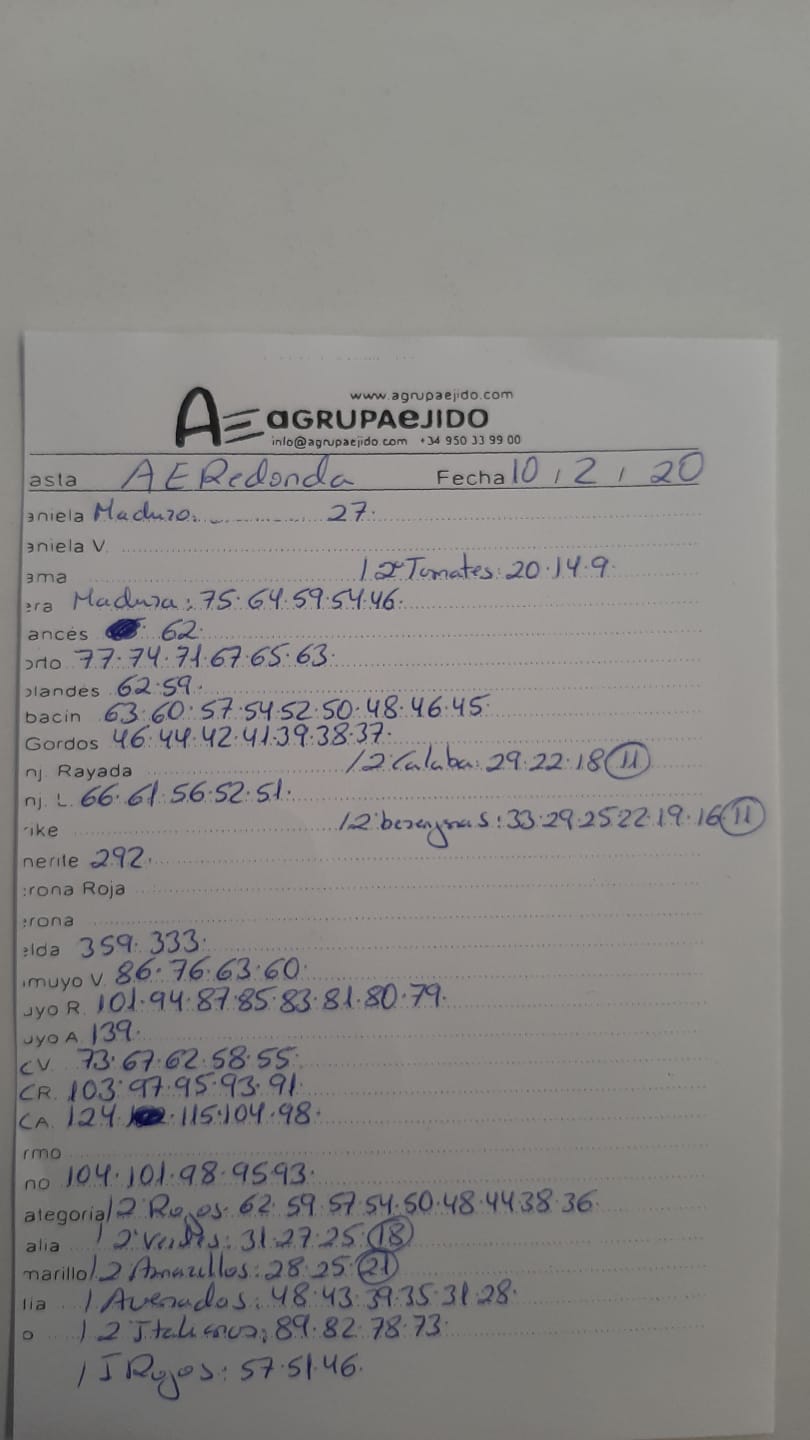 www.agrupaejido.com
AE aGRUPAeJIDO
info@agrupaejido.com +34 950 33 99 00
asta AERedonda Fecha 10 / 2 / 20
aniela Maduro 27.
aniela V.
ama / 2ª Tomates: 20.14.9.
era Madura: 75.64.59.54.46.
ancés 62.
orto 77.74.71.67.65.63.
olandés 62.59.
bacin 63.60.57.54.52.50.48.46.45.
Gordos 46.44.42.41.39.38.37.
nj. Rayada / 2 Calaba: 29.22.18 11
nj. L. 66.61.56.52.51.
rike / 2 berenjenas: 33.29.25.22.19.16 11
nerite 292.
erona Roja
erona
elda 359.333.
muyo V. 86.76.63.60.
uyo R. 101.94.87.85.83.81.80.79.
uyo A 139.
CV. 73.67.62.58.55.
CR. 103.97.95.93.91.
CA. 124. 115.104.98.
rmo
no 104.101.98.95.93.
ategoria / 2 Rojos: 62.59.57.54.50.48.44.38.36.
alia / 2 Verdes: 31.27.25. 18
marillo / 2 Amarillos: 28.25. 21
lia / Averiados: 48.43.39.35.31.28.
o / 2 Italianos: 89.82.78.73.
/ I Rojos: 57.51.46.